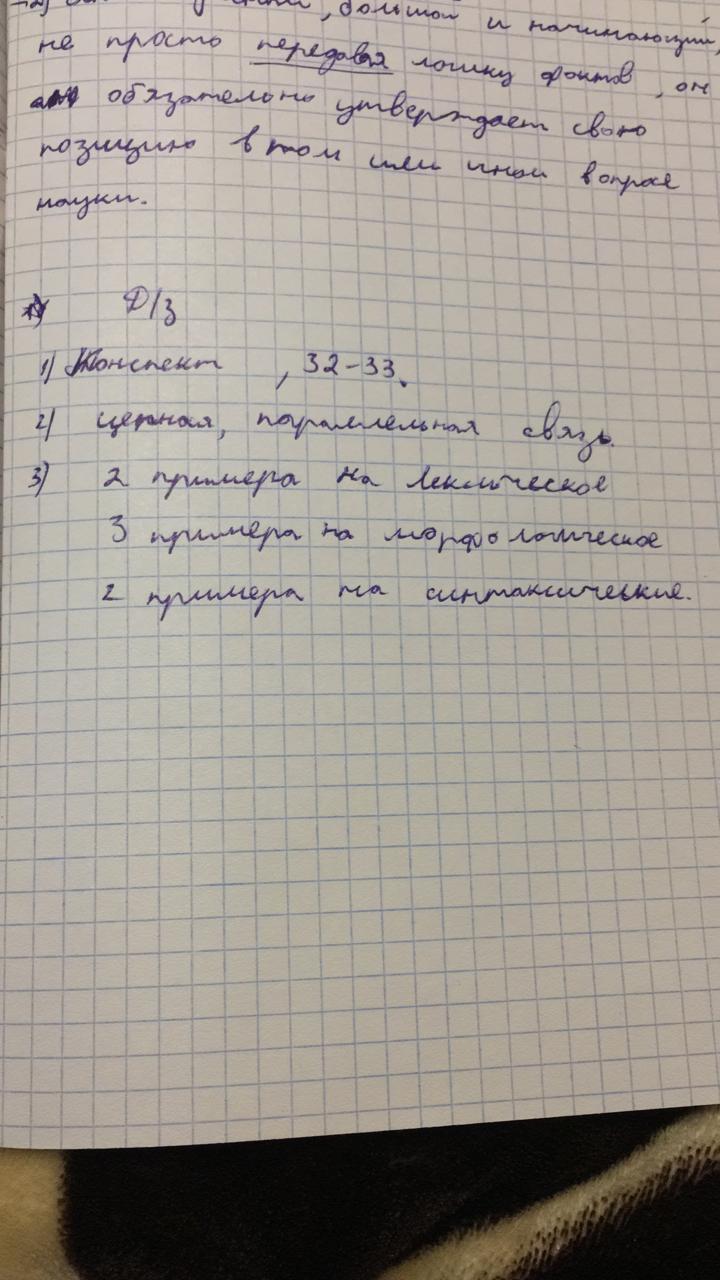 большой и начинающий,
не просто передавая логику фактов, он
обязательно утверждает свою
позицию в том или ином вопросе
науки.
Д/з
1) Конспект , 32-33.
2) цепная, параллельная связь.
3) 2 примера на лексическое
3 примера на морфологическое
2 примера на синтаксические.